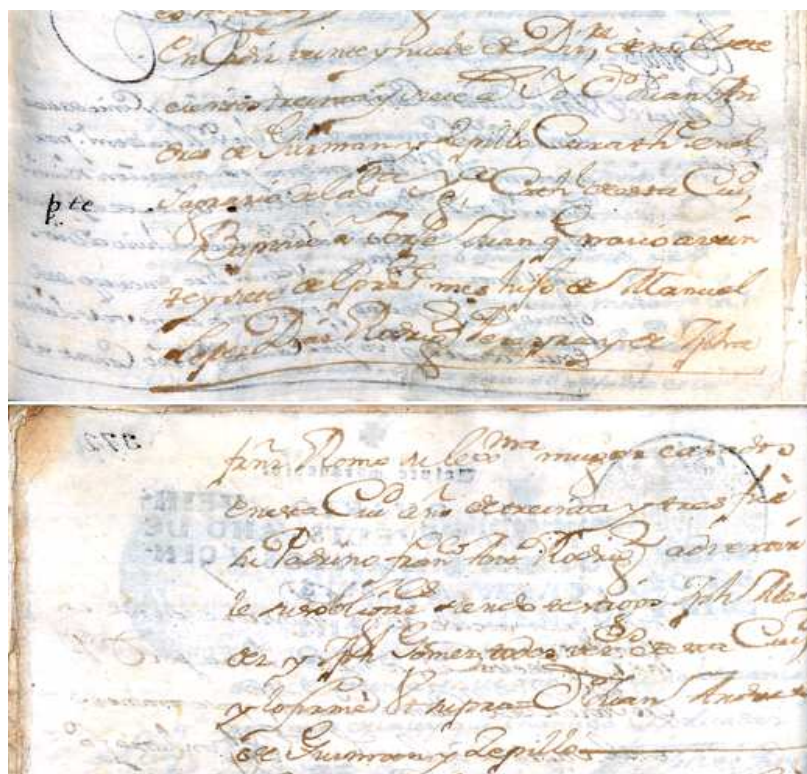 En Cadiz veinte y nueve de Dizre, de mil sete
cientos treinta y siete a. Yo Dn Juan An
dres de Guzman y Lepillo Cura thte en el
Sagrario de la Sta Yga Cathl de esta Ciud,
pte
Baptize a Jorje Juan q. nacio a vein
te y siete del prete mes hijo de Manuel
Lopez Diaz Rodrigz Pereyra y de Jpha
372
su lexma muger casados
en esta Ciud año de treinta y tres fue
su Padrino franco Anto Rodrigz advertile
su obligon siendo testigos Jph
y Jph Gomez todos vezos de esta Ciud
y lo firmè Ut supra Dn Juan Andres
de Guzman y Lepillo